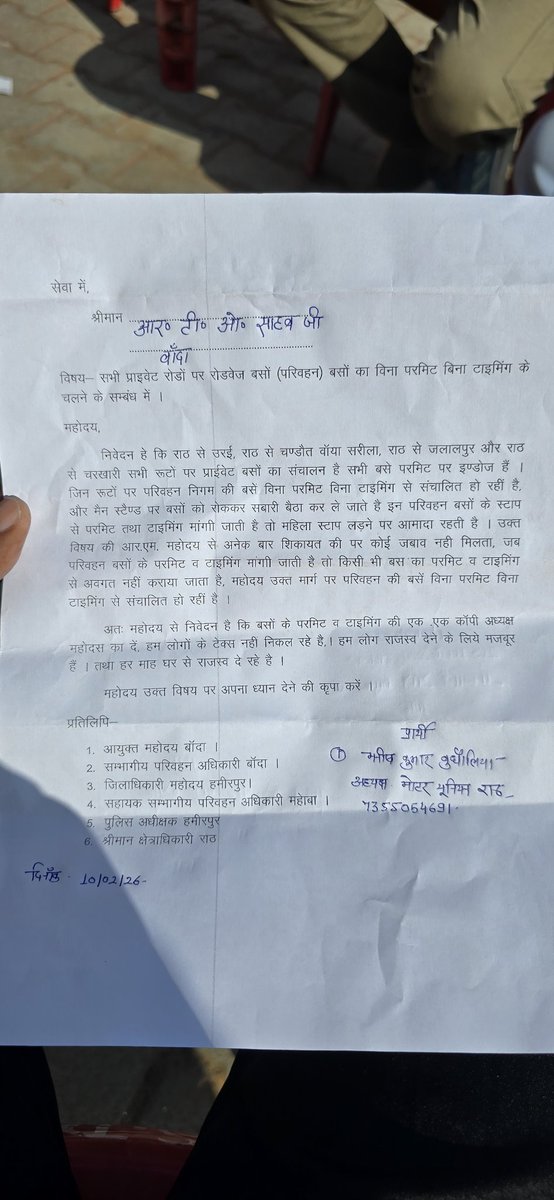 सेवा में,
श्रीमान आर० टी० ओ० साहब जी
बाँदा
विषय– सभी प्राइवेट रोडों पर रोडवेज बसों (परिवहन) बसों का विना परमिट बिना टाइमिंग के
चलने के सम्बंध में ।
महोदय,
निवेदन है कि राठ से उरई, राठ से चण्डौत वॉया सरीला, राठ से जलालपुर और राठ
से चरखारी सभी रूटों पर प्राईवेट बसों का संचालन है सभी बसे परमिट पर इण्डोज हैं ।
जिन रूटों पर परिवहन निगम की बसें विना परमिट विना टाइमिंग से संचालित हो रहीं है,
और मैन स्टैण्ड पर बसों को रोककर सबारी बैठा कर ले जाते है इन परिवहन बसों के स्टाप
से परमिट तथा टाइमिंग मांगी जाती है तो महिला स्टाप लड़ने पर आमादा रहती है । उक्त
विषय की आर.एम. महोदय से अनेक बार शिकायत की पर कोई जबाव नही मिलता, जब
परिवहन बसों के परमिट व टाइमिंग मांगी जाती है तो किसी भी बस का परमिट व टाइमिंग
से अवगत नहीं कराया जाता है, महोदय उक्त मार्ग पर परिवहन की बसें विना परमिट विना
टाइमिंग से संचालित हो रहीं है ।
अतः महोदय से निवेदन है कि बसों के परमिट व टाइमिंग की एक एक कॉपी अध्यक्ष
महोदस का दें, हम लोगो के टेक्स नही निकल रहे है,। हम लोग राजस्व देने के लिये मजबूर
हैं । तथा हर माह घर से राजस्व दे रहे है ।
महोदय उक्त विषय पर अपना ध्यान देने की कृपा करें ।
प्रतिलिपि–
1. आयुक्त महोदय बाँदा ।
2. सम्भागीय परिवहन अधिकारी बाँदा ।
3. जिलाधिकारी महोदय हमीरपुर।
4. सहायक सम्भागीय परिवहन अधिकारी महोबा ।
5. पुलिस अधीक्षक हमीरपुर
6. श्रीमान क्षेत्राधिकारी राठ
प्रार्थी
① कुमार बुधौलिया
अध्यक्ष मोटर यूनियन राठ
7355064691
दिनाँक - 10/02/26-